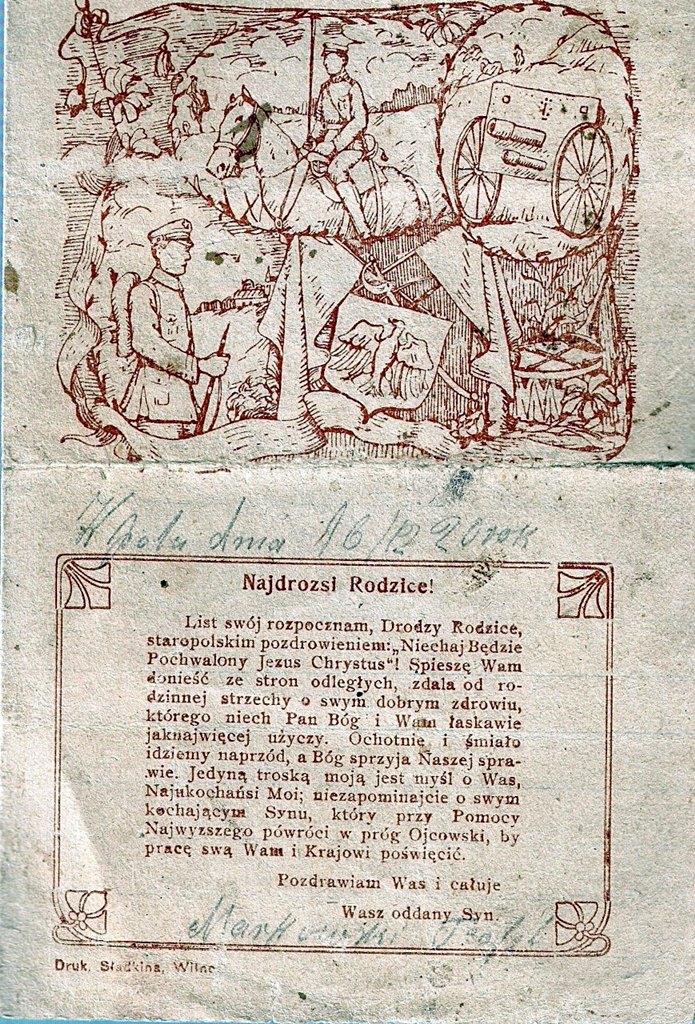 W polu dnia 16/ 20 rok
Najdrozsi Rodzice!
List swój rozpocznam, Drodzy Rodzice,
staropolskim pozdrowieniem: „Niechaj Będzie
Pochwalony Jezus Chrystus“! Spieszę Wam
donieść ze stron odległych, zdala od ro-
dzinnej strzechy o swym dobrym zdrowiu,
którego niech Pan Bóg i Wam łaskawie
jaknajwięcej użyczy. Ochotnie i śmiało
idziemy naprzód, a Bóg sprzyja Naszej spra-
wie. Jedyną troską moją jest myśl o Was,
Najukochańsi Moi; niezapominajcie o swym
kochającym Synu, który przy Pomocy
Najwyzszego powróci w próg Ojcowski, by
pracę swą Wam i Krajowi poświęcić.
Pozdrawiam Was i całuje
Wasz oddany Syn.
Markowski
Druk. Sładkina, Wilno